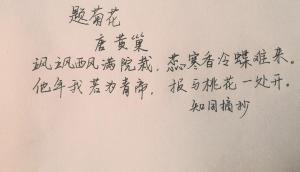 题菊花
唐黄巢
飒飒西风满院栽，蕊寒香冷蝶难来。
他年我若为青帝，报与桃花一处开。
知同摘抄